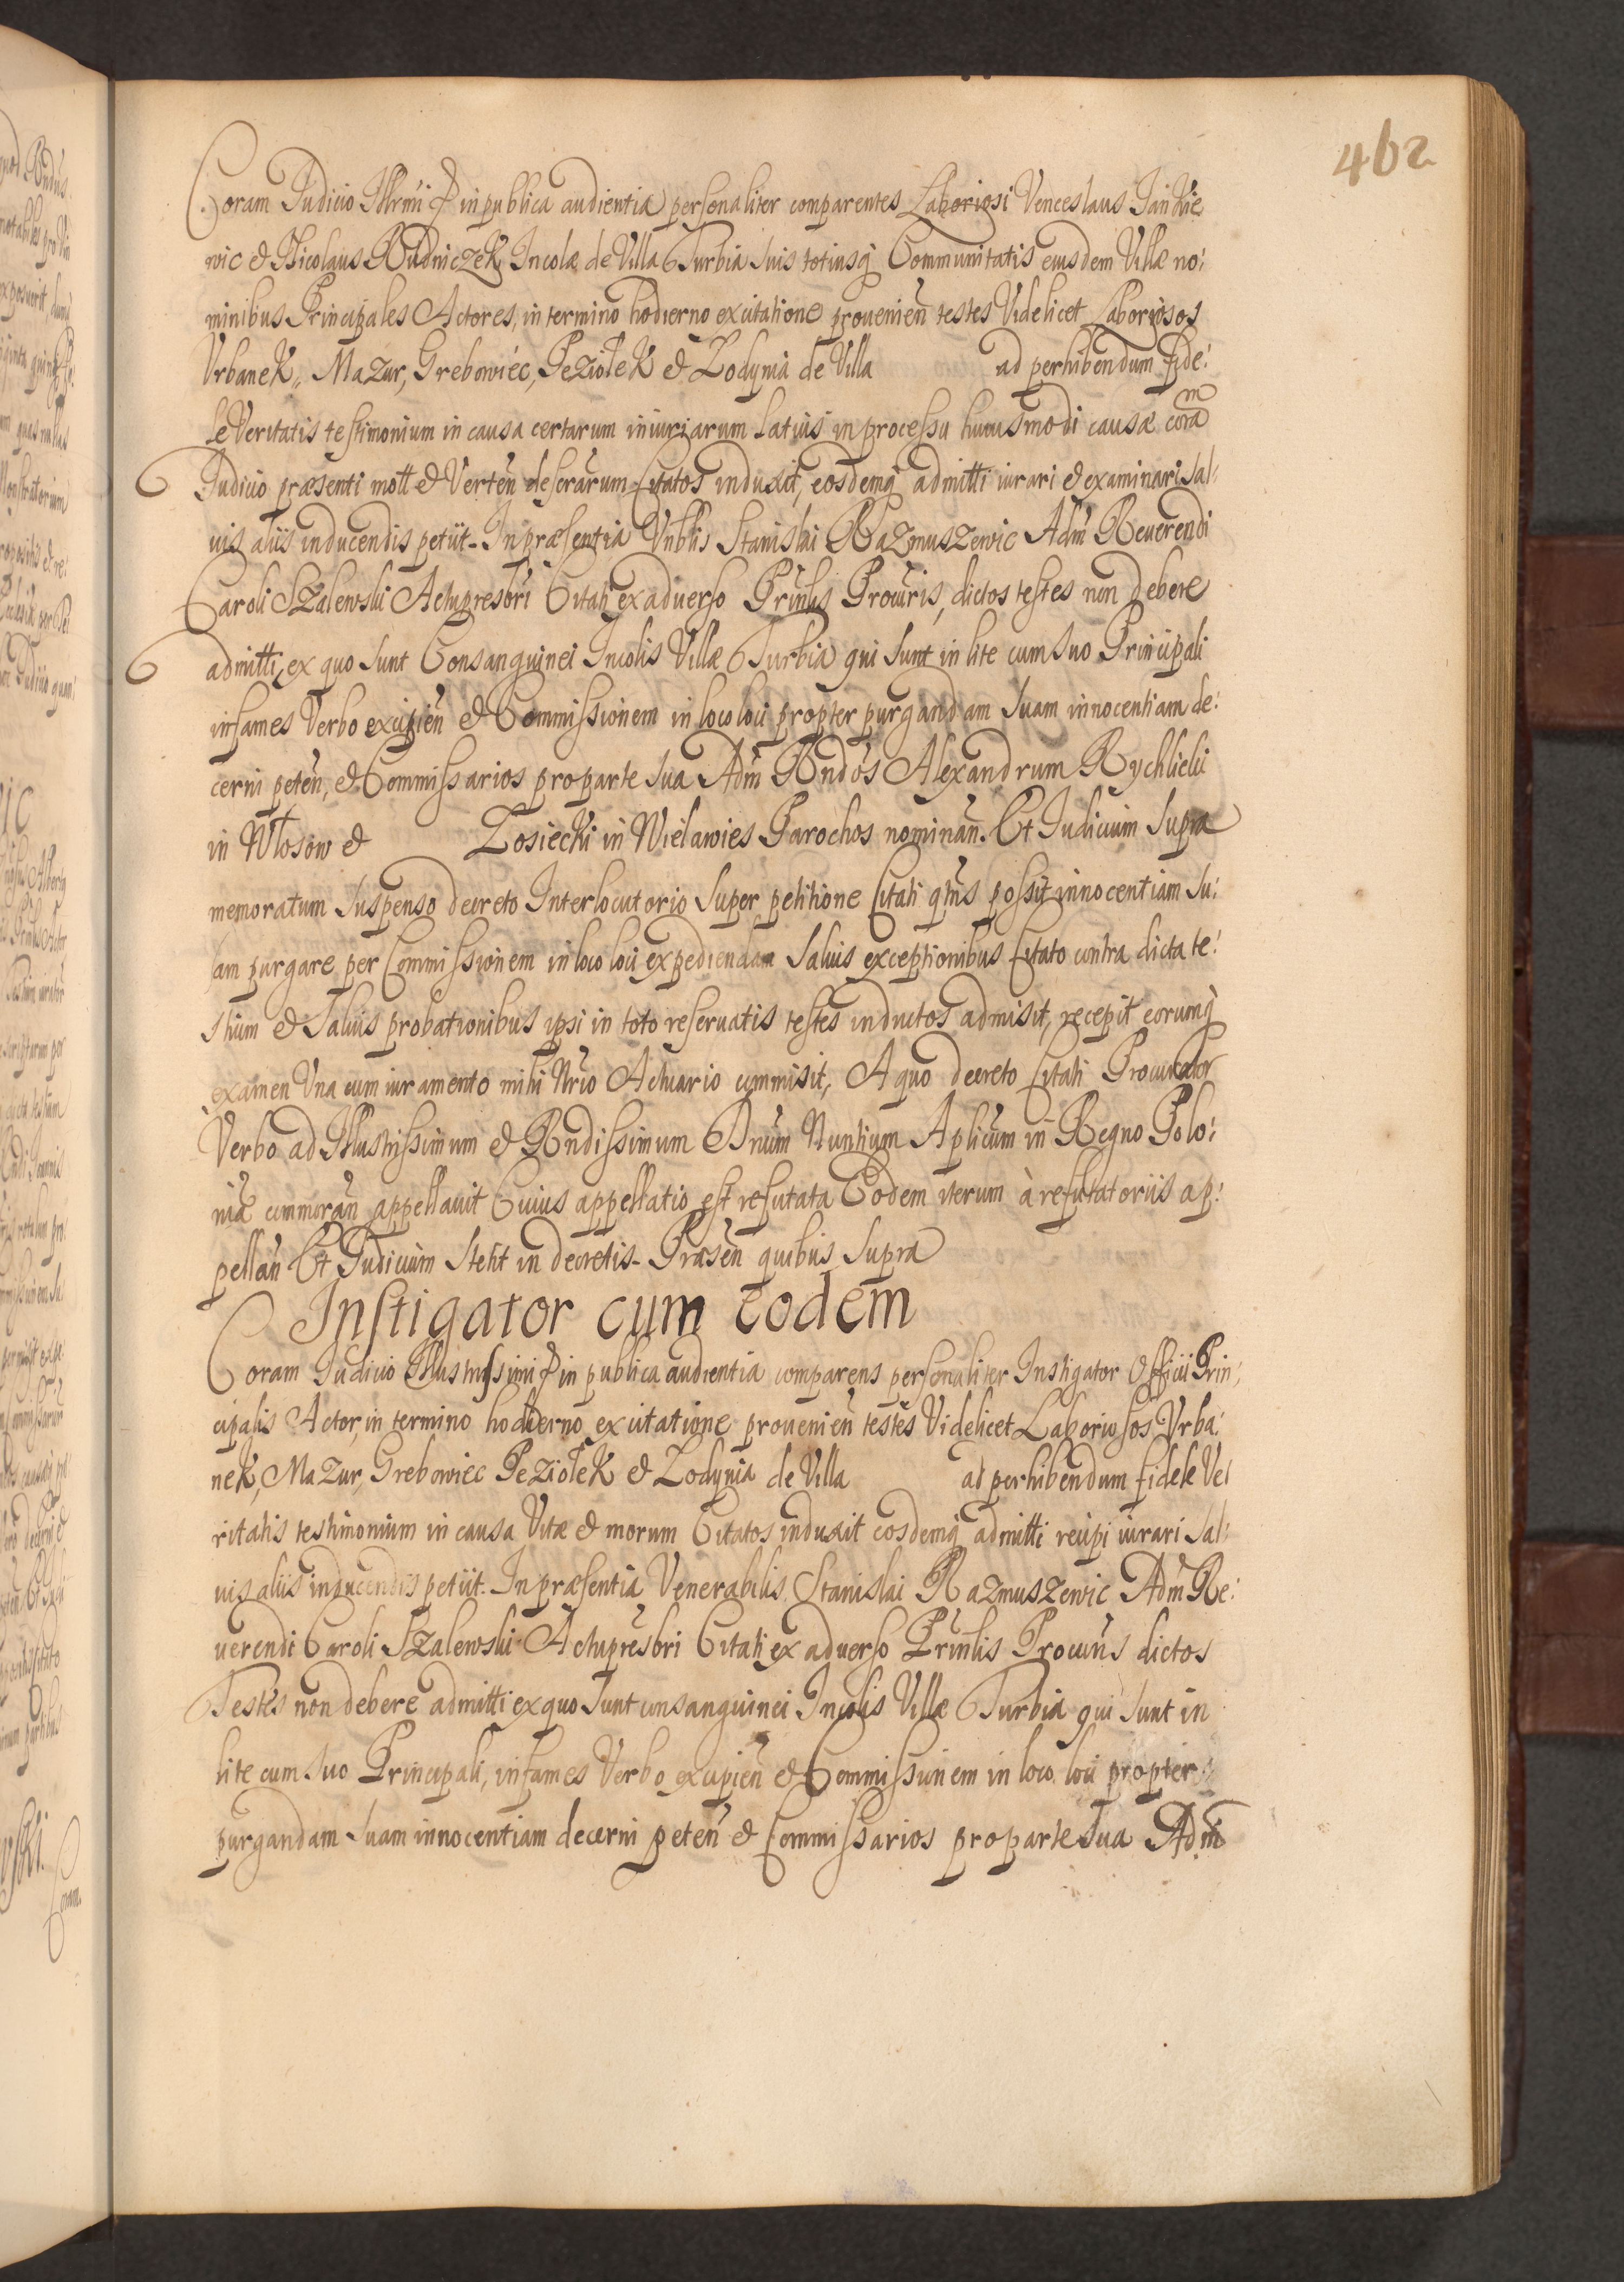 462
Coram Judicio Illrmi & in publica audientia personaliter comparentes Laboriosi Venceslaus Jankie
wic & Nicolaus Rudniczek Incolæ de Villa Turbia suis totiusq Communitatis eiusdem Villæ no:
minibus Principales Actores, in termino hodierno ex citatione prouenien testes Videlicet Laboriosos
Vrbanek, Mazur, Grebowiec, Peziołek & Zodynia de Villa ad perhibendum fide:
le Veritatis testimonium in causa certarum iniuriarum latius in processu huiusmodi causæ coram
Judicio præsenti mott & Verten deserarum Citatos induxit, eosdemq admitti iurari & examinari sal:
uis aliis inducendis petiit. In præsentia Vnblis Stanislai Razmuszewic Adm Reuerendi
Caroli Szalewski Actupresbri Citati ex aduerso Prinlis Procuris, dictos testes non debere
admitti, ex quo sunt Consanguinei Incolis Villæ Turbia qui sunt in lite cum suo Principali
infames Verbo excipien & Commissionem in loco loci propter purgandam suam innocentiam de:
cerni peten, & Commissarios pro parte sua Adm Rndos Alexandrum Rychlicki
in Włosow & Zosiecki in Wielawies Parochos nominan. Et Judicium supra
memoratum suspenso decreto Interlocutorio super petitione Citati qtns possit innocentiam su:
am purgare per Commissionem in loco loci expediendam saluis exceptionibus Citato contra dicta te:
stium & saluis probationibus ipsi in toto reseruatis testes inductos admisit, recepit eorumq
examen Vna cum iuramento mihi Nrio Actuario commisit, A quo decreto Citati Procurator
Verbo ad Illustrissimum & Rndissimum Dnum Nuntium Aplicum in Regno Polo:
niæ commoran appellauit Cuius appellatio est refutata Eodem iterum à refutatoriis ap:
pellan Et Judicium stetit in decretis. Præsen quibus supra
Instigator cum eodem
Coram Judicio Illustrissimi & in publica audientia comparens personaliter Instigator Officii Prin:
cipalis Actor, in termino hodierno ex citatione prouenien testes Videlicet Laboriosos Vrba:
nek, Mazur, Grebowiec Peziołek & Zodynia de Villa ad perhibendum fidele Ve:
ritatis testimonium in causa Vitæ & morum Citatos induxit eosdemq admitti recipi iurari sal:
uis aliis inducendis petiit. In præsentia Venerabilis Stanislai Razmuszewic Adm Re:
uerendi Caroli Szalewski Actupresbri Citati ex aduerso Prinlis Procuris dictos
Testes non debere admitti ex quo sunt consanguinei Incolis Villæ Turbia qui sunt in
lite cum suo Principali, infames Verbo excipien & Commissionem in loco loci propter
purgandam suam innocentiam decerni peten & Commissarios pro parte sua Adm